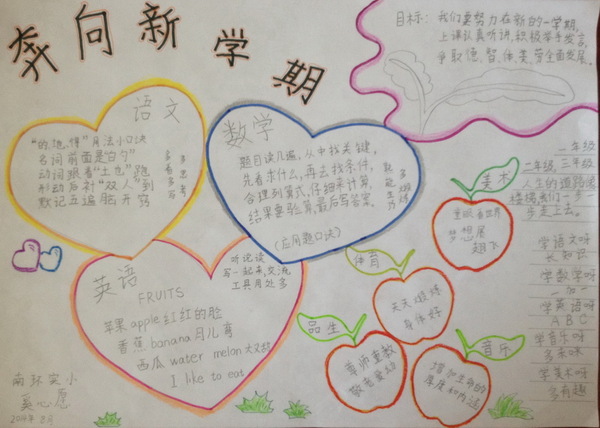 奔向新学期
目标：我们要努力在新的一学期，
上课认真听讲，积极举手发言，
争取德、智、体、美、劳全面发展。
语文
“的、地、得”用法小口诀
多词前面是“白勺”
动词跟着“土也”跑
形动后补“双人”到
默记五遍脑开窍
多看多写
多思考
数学
题目读几遍，从中找关键，
先看求什么，再去找条件，
合理列算式，仔细来计算，
结果要验算，最后写答案。
（应用题口诀）
英语
FRUITS
苹果apple红红的脸
香蕉banana月儿弯
西瓜water melon大又甜
I like to eat
听说读
写一起来，交流
工具用处多
美术
重眼看世界
梦想展
翅飞
体育
天天锻炼
身体好
品生
尊师重教
敬老爱幼
音乐
增加生命的
厚度和内涵
一年级
二年级，三年级
人生的道路像
楼梯，我们一步一
步走上去。
学语文呀
长知识
学数学呀
一加一
学英语呀
A B C
学音乐呀
多来咪
学美术呀
多有趣
南环实小
奚心愿
2014年8月